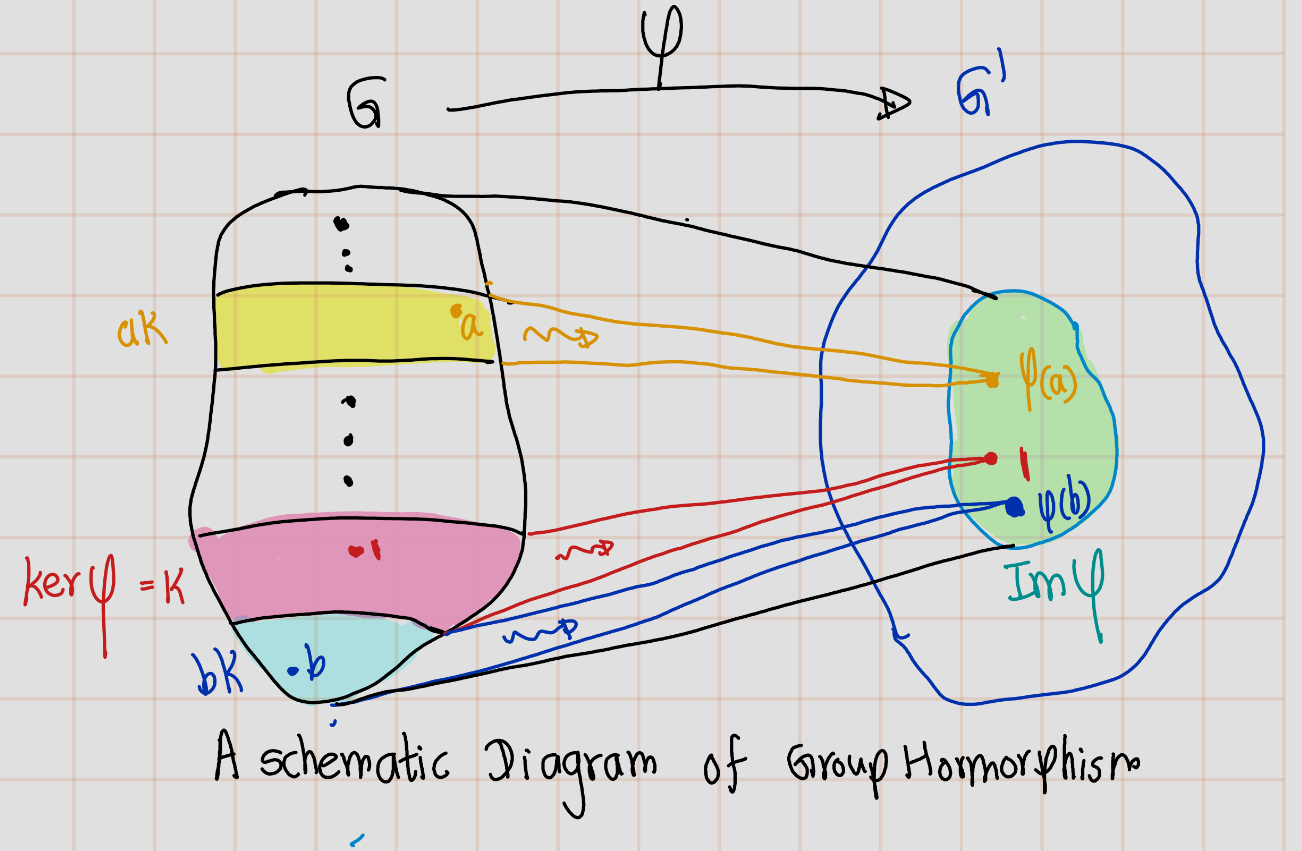 φ
G G'
aK a φ(a)
1
φ(b)
1
kerφ = K Imφ
bK b
A schematic Diagram of Group Hormorphism